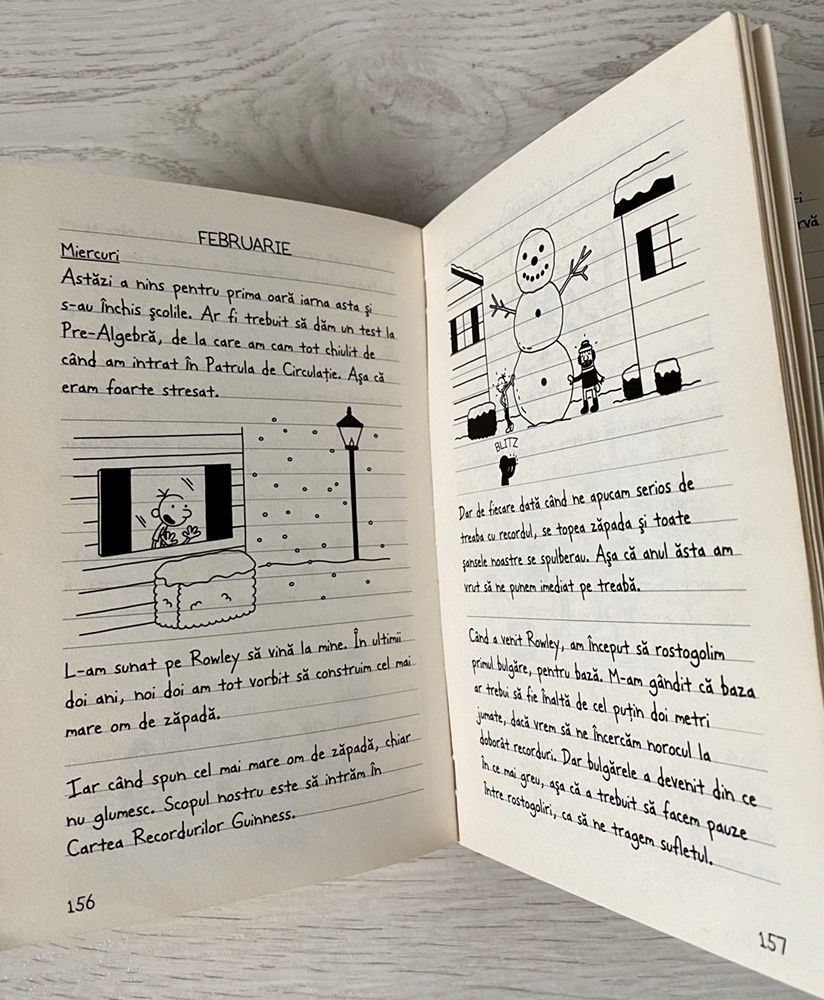 FEBRUARIE
Miercuri
Astăzi a nins pentru prima oară iarna asta și
s-au închis școlile. Ar fi trebuit să dăm un test la
Pre-Algebră, de la care am cam tot chiulit de
când am intrat în Patrula de Circulație. Așa că
eram foarte stresat.
L-am sunat pe Rowley să vină la mine. În ultimii
doi ani, noi doi am tot vorbit să construim cel mai
mare om de zăpadă.
Iar când spun cel mai mare om de zăpadă, chiar
nu glumesc. Scopul nostru este să intrăm în
Cartea Recordurilor Guinness.
156
BLITZ
Dar de fiecare dată când ne apucam serios de
treaba cu recordul, se topea zăpada și toate
șansele noastre se spulberau. Așa că anul ăsta am
vrut să ne punem imediat pe treabă.
Când a venit Rowley, am început să rostogolim
primul bulgăre, pentru bază. M-am gândit că baza
ar trebui să fie înaltă de cel puțin doi metri
jumate, dacă vrem să ne încercăm norocul la
doborât recorduri. Dar bulgărele a devenit din ce
în ce mai greu, așa că a trebuit să facem pauze
între rostogoliri, ca să ne tragem sufletul.
157